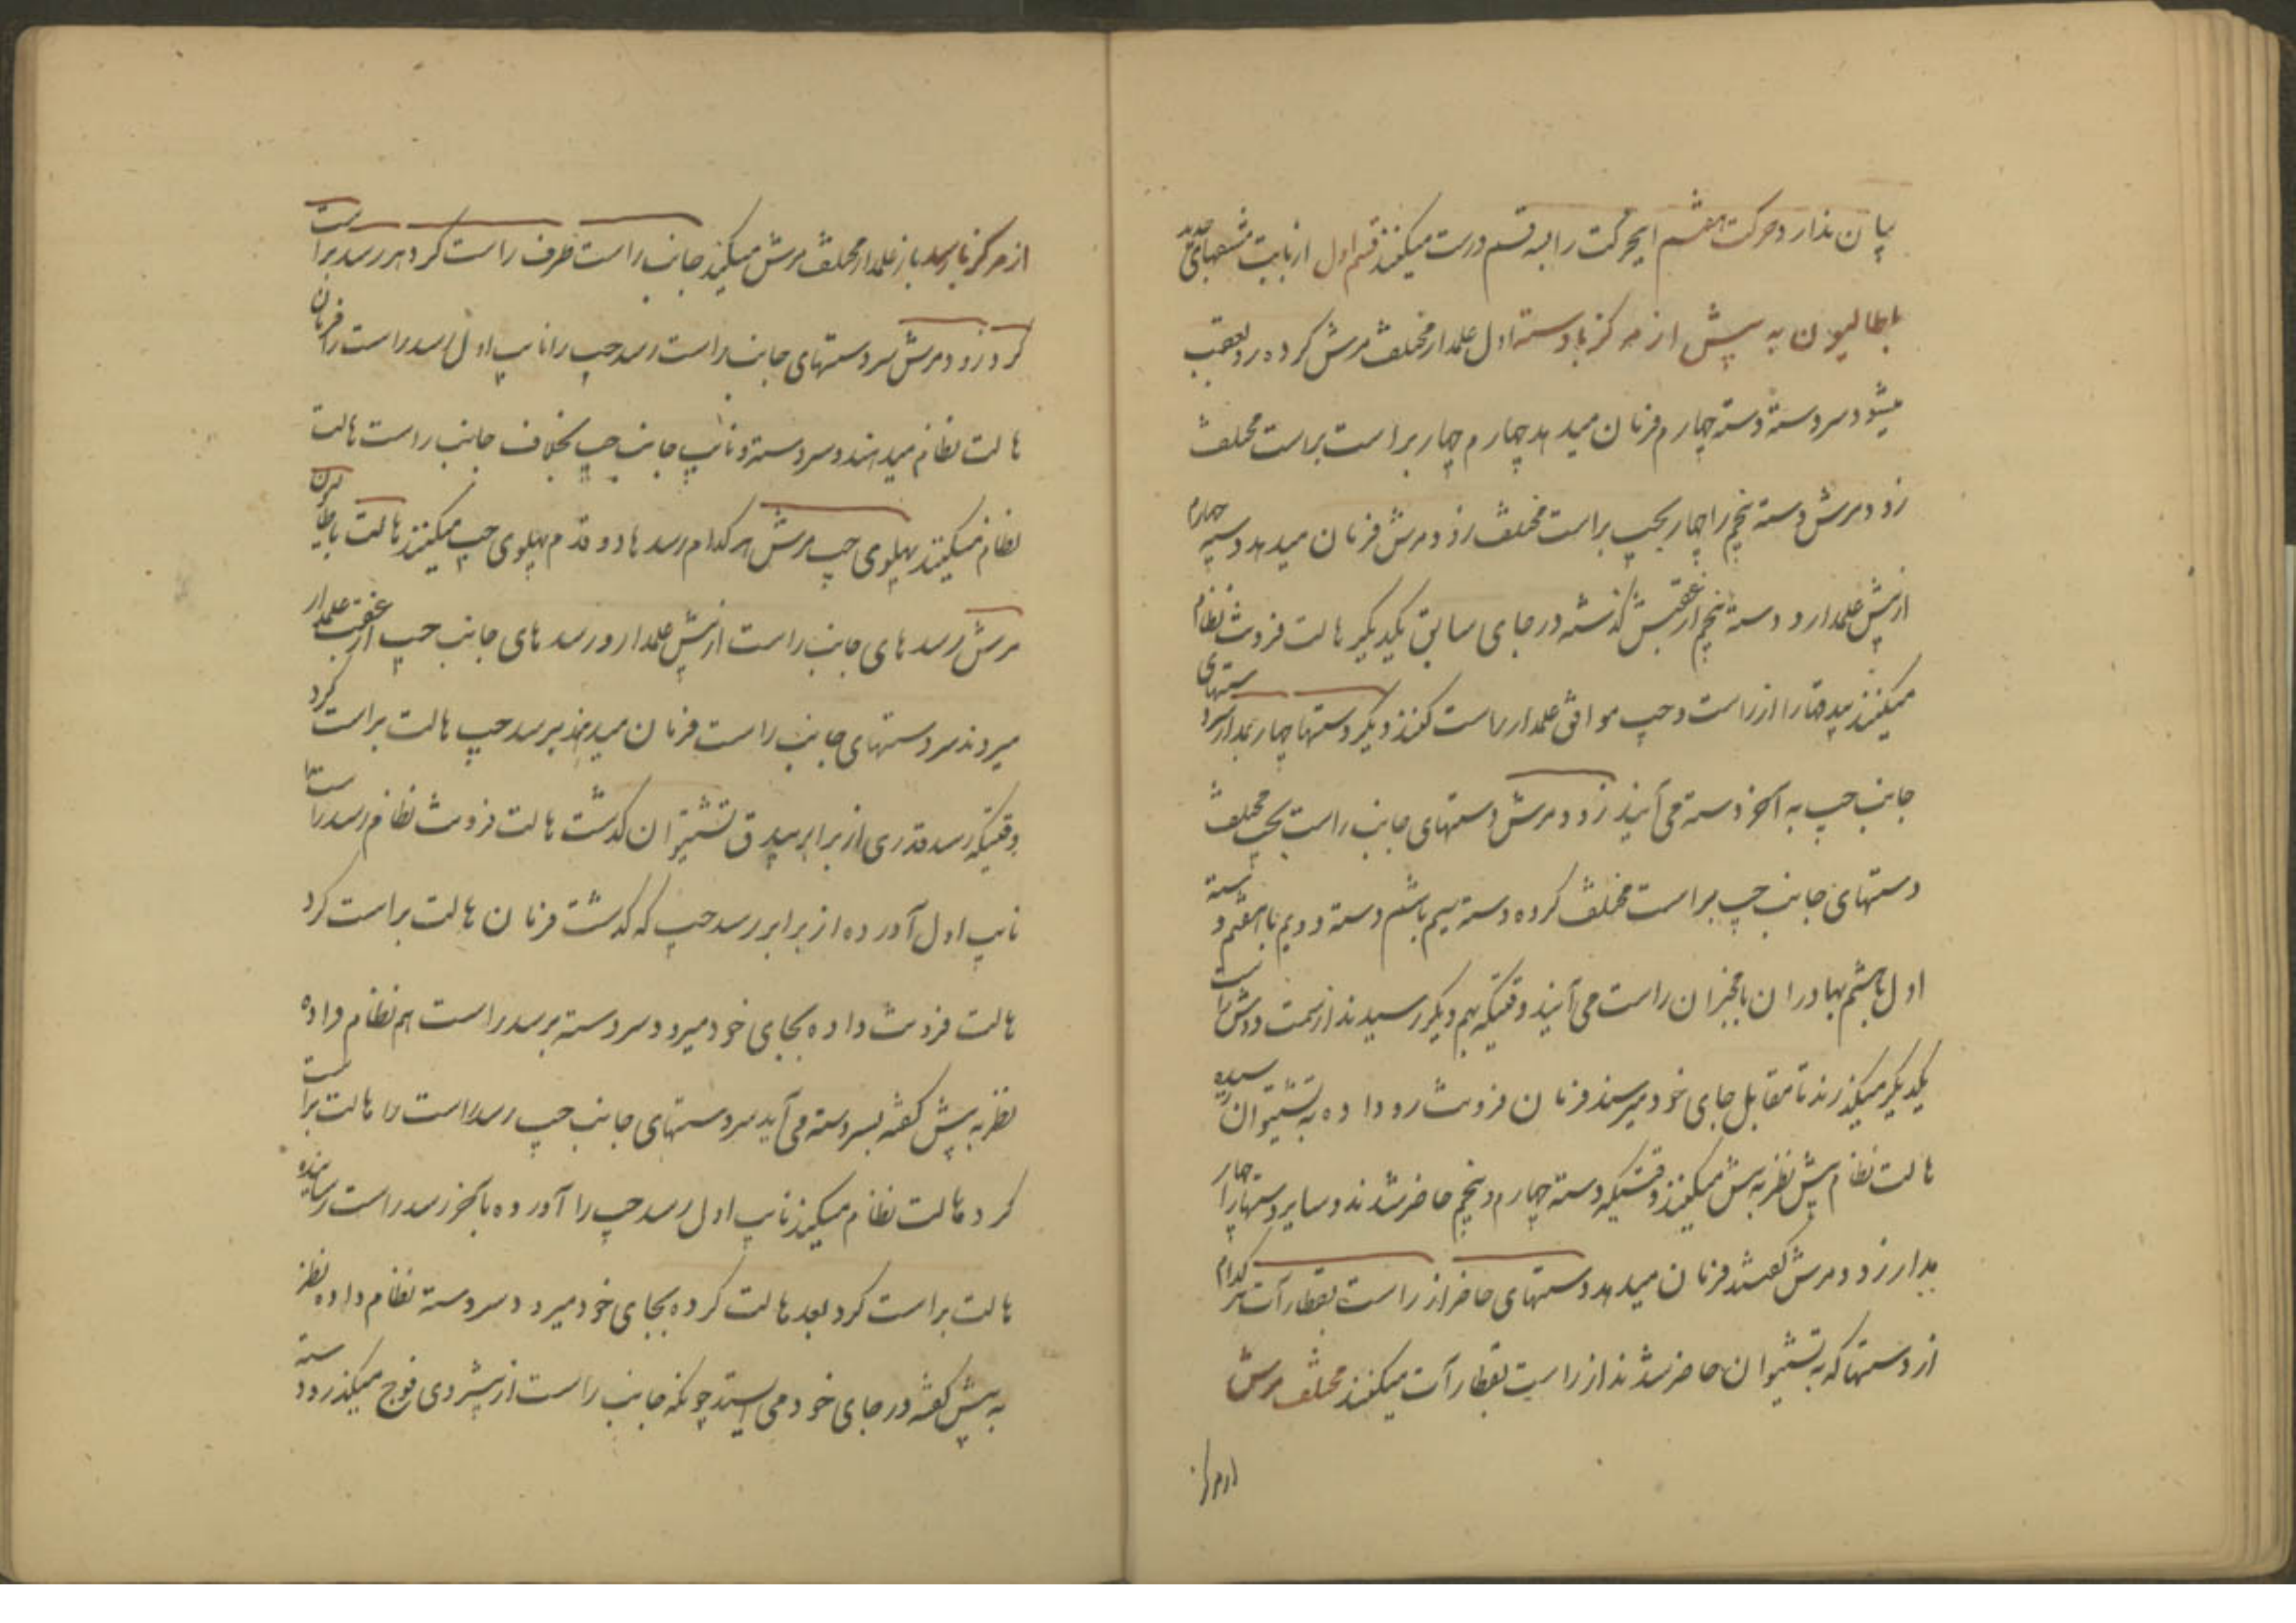 پیان نذارد حرکت هفتم اینحرکت را بسه قسم درست میکنند قسم اول از بابت مشقهای جدید
بطالیون به پیش از مرکز با دسته اول علمدار مختلف مرش کرده رو بعقب
میشود سردسته دسته چهارم فرمان میدهد چهارم چهار براست براست مختلف
زود مرش دسته پنجم را چهار بچپ براست مختلف زود مرش فرمان میدهد دسته چهارم
از پیش علمدار و دسته پنجم از عقبش گذشته در جای سابق یکدیگر هالت فرونت نظام
میکنند بیدقها را از راست و چپ موافق علمدار راست کنند دیگر دستها چهار بمدار سردستهای
جانب چپ به آخر دسته می آیند زود مرش دستهای جانب راست بچپ مختلف
دستهای جانب چپ براست مختلف کرده دسته سیم با ششم دسته دویم با هفتم و دسته
اول با هشتم بهادران با مخبران راست می آیند وقتیکه بهم دیگر رسیدند از سمت دوش راست
یکدیگر میگذرند تا مقابل جای خود میرسند فرمان فرونت رو داده به تشتیوان رسیده
هالت نظام پیش نظر به پیش میکنند وقتیکه دسته چهارم و پنجم حاضر شدند و سایر دستها را چهار
بمدار زود مرش گفتند فرمان میدهد دستهای حاضر از راست بقطار آت هر کدام
از دستها که به تشتیوان حاضر شدند از راست بقطار آت میکنند مختلف مرش
از مرکز
از مرکز تا رسد باز علمدار مختلف مرش میکنند جانب راست طرف راست کرد هر رسد براست
کرد زود مرش سردستهای جانب راست رسد چپ را نایب اول رسد راست را فرمان
هالت نظام میدهند و سردسته و نایب جانب چپ بخلاف جانب راست هالت
نظام میکنند پهلوی چپ مرش هر کدام رسدها دو قدم پهلوی چپ میکنند هالت باطالیون
مرش رسدهای جانب راست از پیش علمدار و رسدهای جانب چپ از عقب علمدار
میروند سردستهای جانب راست فرمان میدهند برسد چپ هالت براست کرد
وقتیکه رسد قدری از برابر بیدق تشتیوان گذشت هالت فرونت نظام رسد راست را
نایب اول آورده از برابر رسد چپ که گذشت فرمان هالت براست کرد
هالت فرونت داده بجای خود میرود سردسته برسد راست هم نظام داده
نظر به پیش گفته بسر دسته می آید سردستهای جانب چپ رسد راست را هالت براست
کرد هالت نظام میکنند نایب اول رسد چپ را آورده بآخر رسد راست رسانیده
هالت براست کرد بعد هالت کرده بجای خود میرود سردسته نظام داده نظر
به پیش گفته در جای خود می ایستد چونکه جانب راست از پیشروی فوج میگذرد دسته